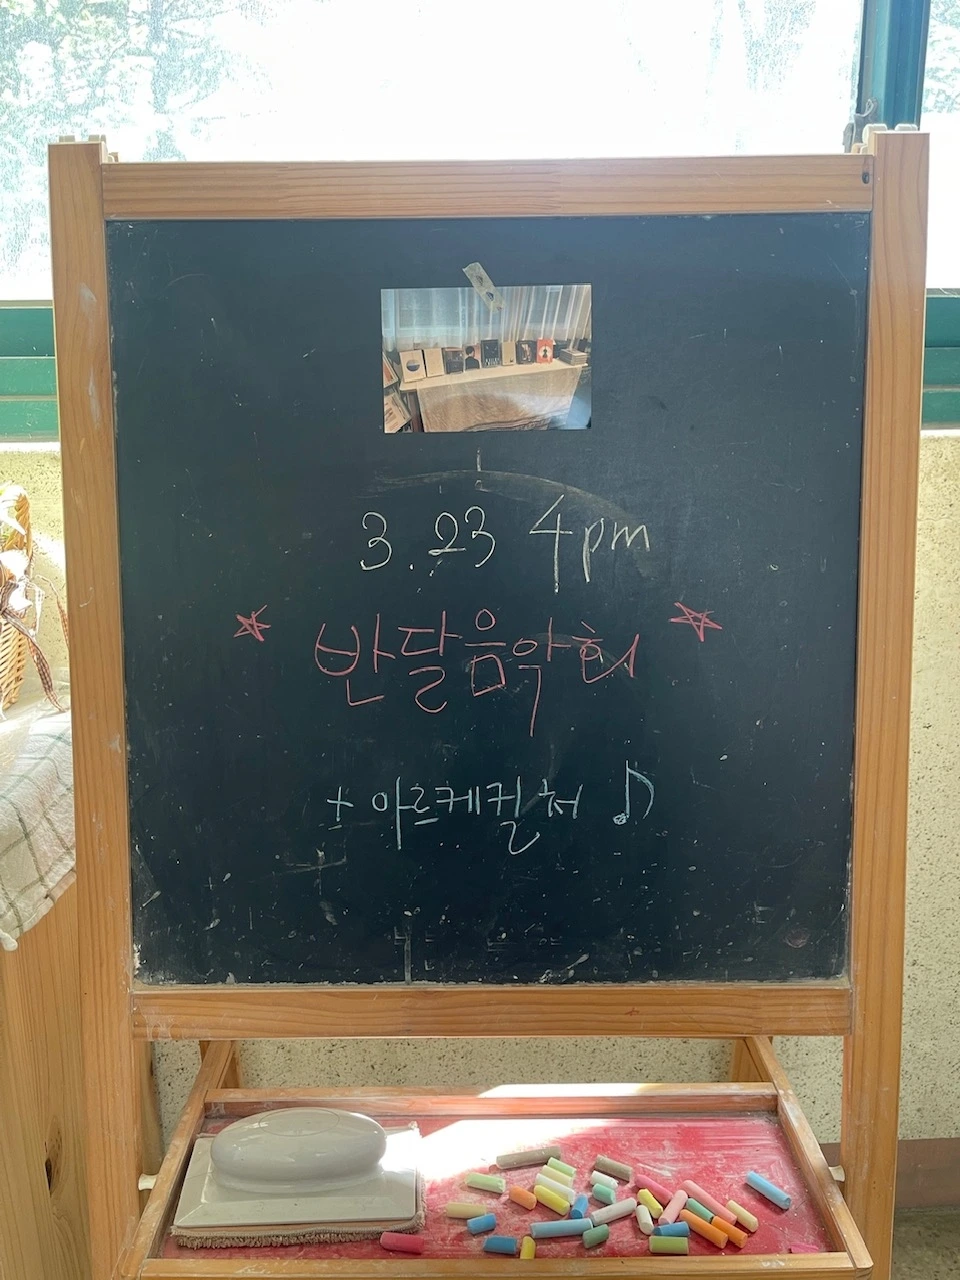 3.23 4pm
* 반달음악회 ☆
+ 아르케컬쳐 ♪